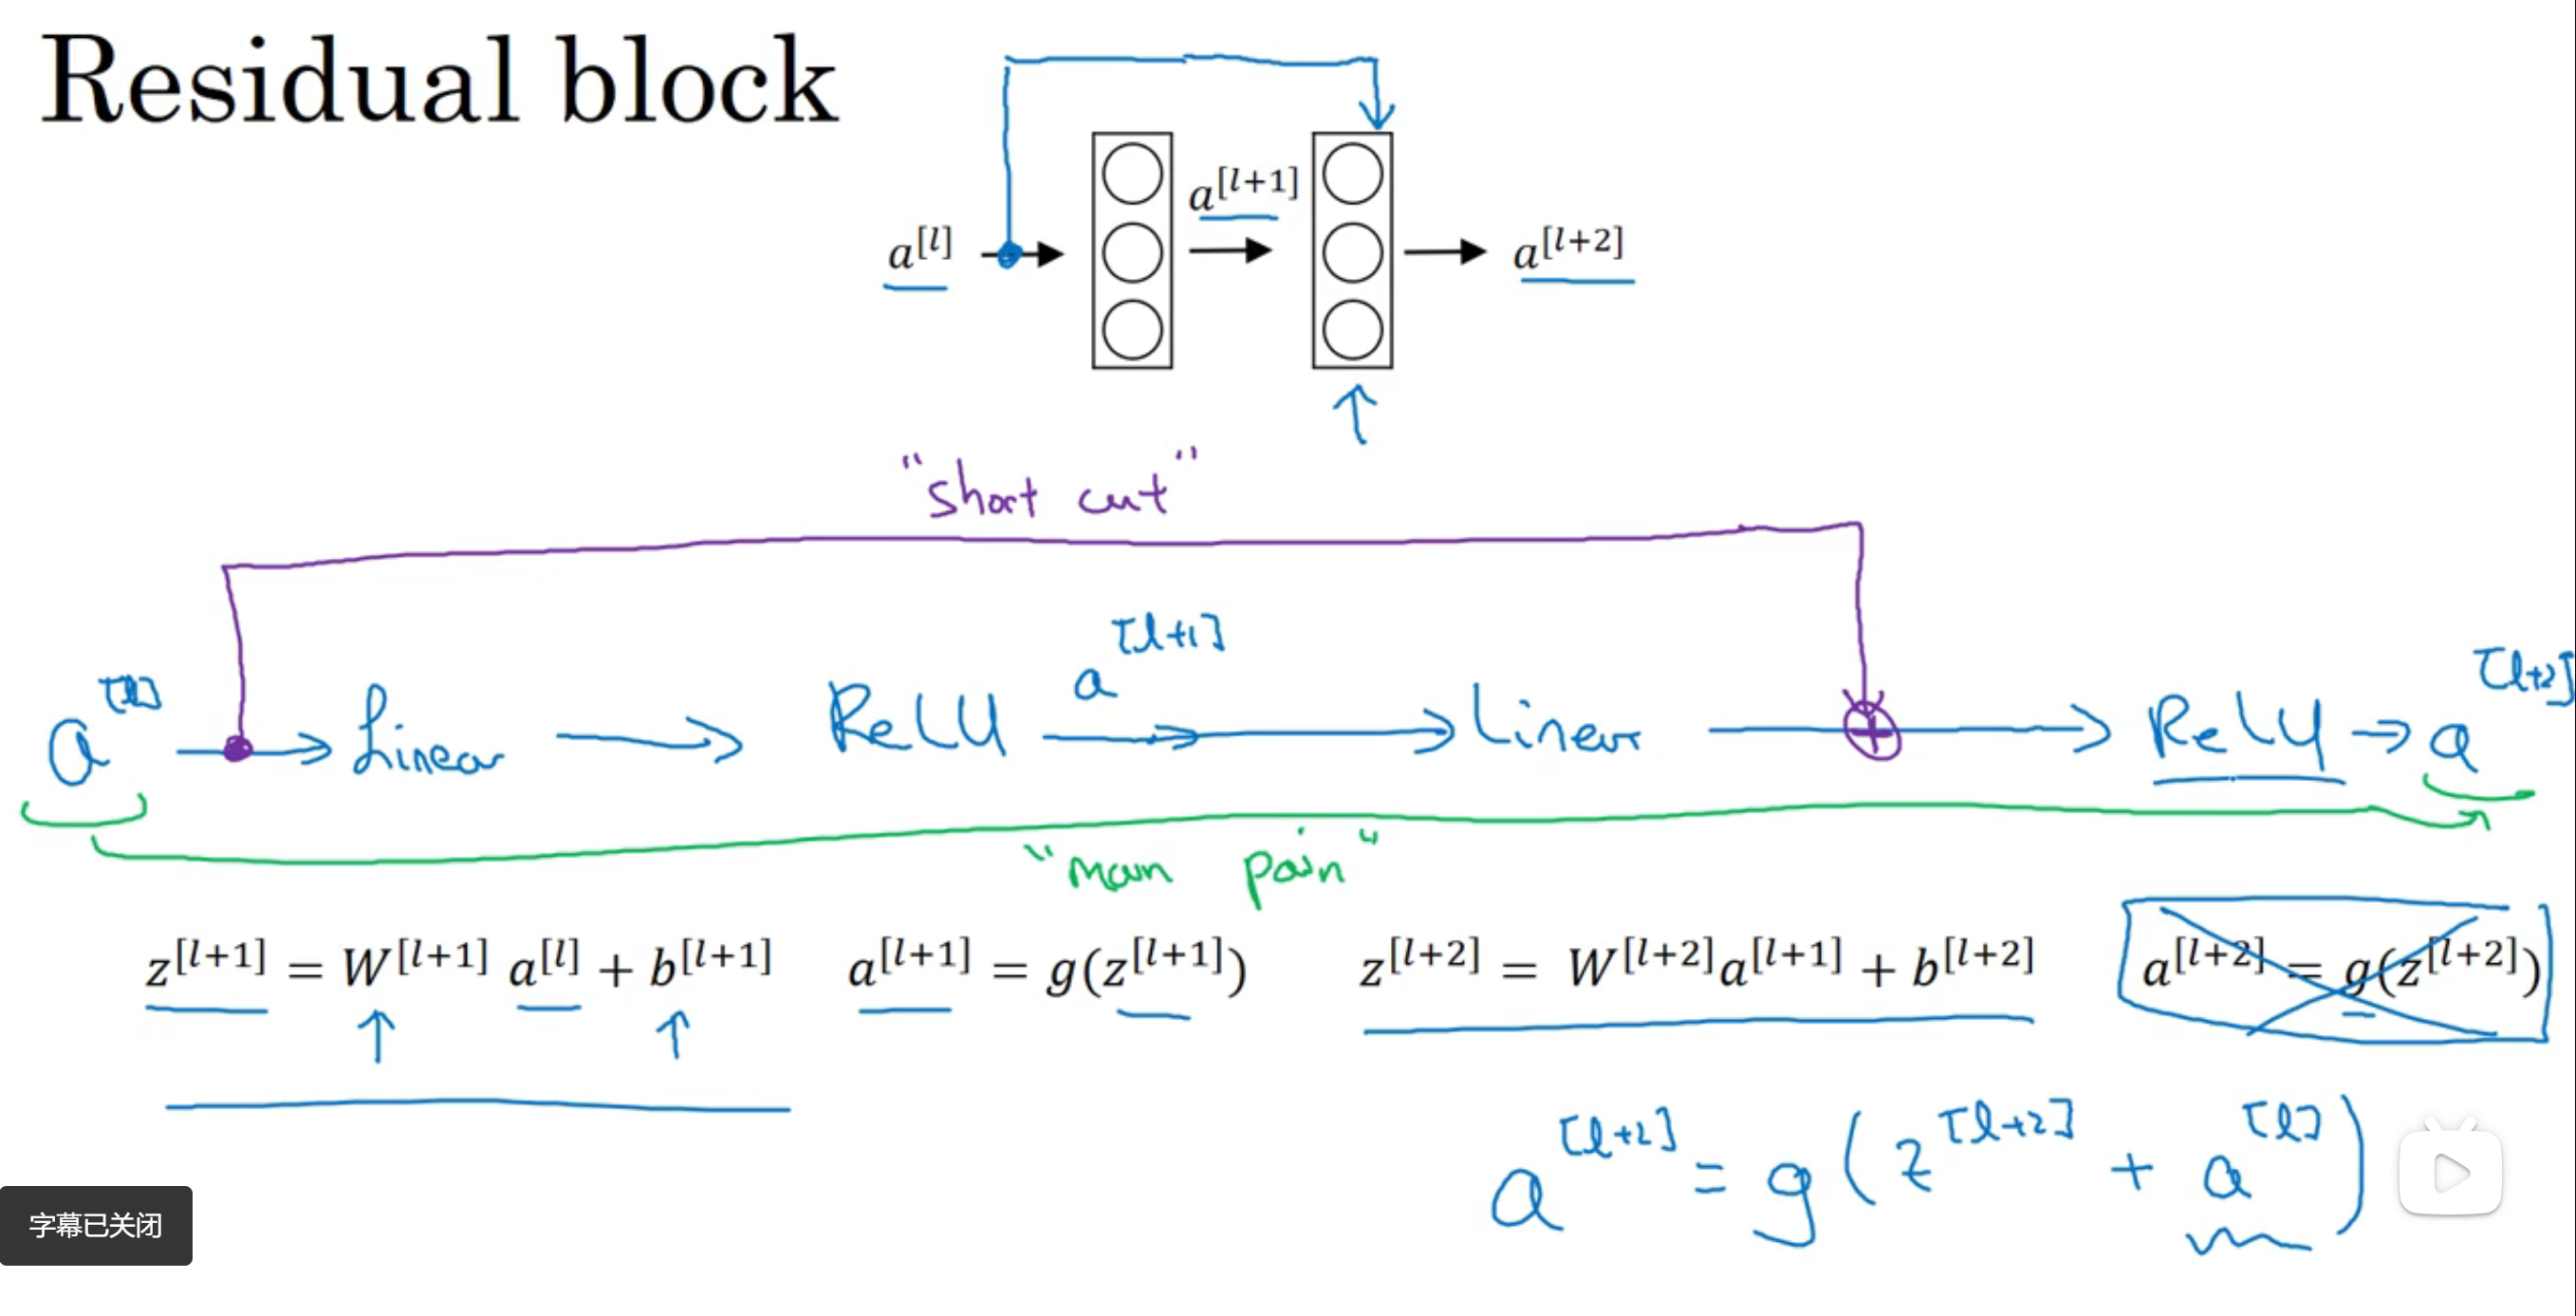 Residual block
a^[l] a^[l+1] a^[l+2]
"short cut"
a^[l] → Linear → ReLU a^[l+1] → Linear → ReLU → a^[l+2]
"main path"
z^[l+1] = W^[l+1] a^[l] + b^[l+1] a^[l+1] = g(z^[l+1]) z^[l+2] = W^[l+2]a^[l+1] + b^[l+2] a^[l+2] = g(z^[l+2])
a^[l+2] = g(z^[l+2] + a^[l])
字幕已关闭